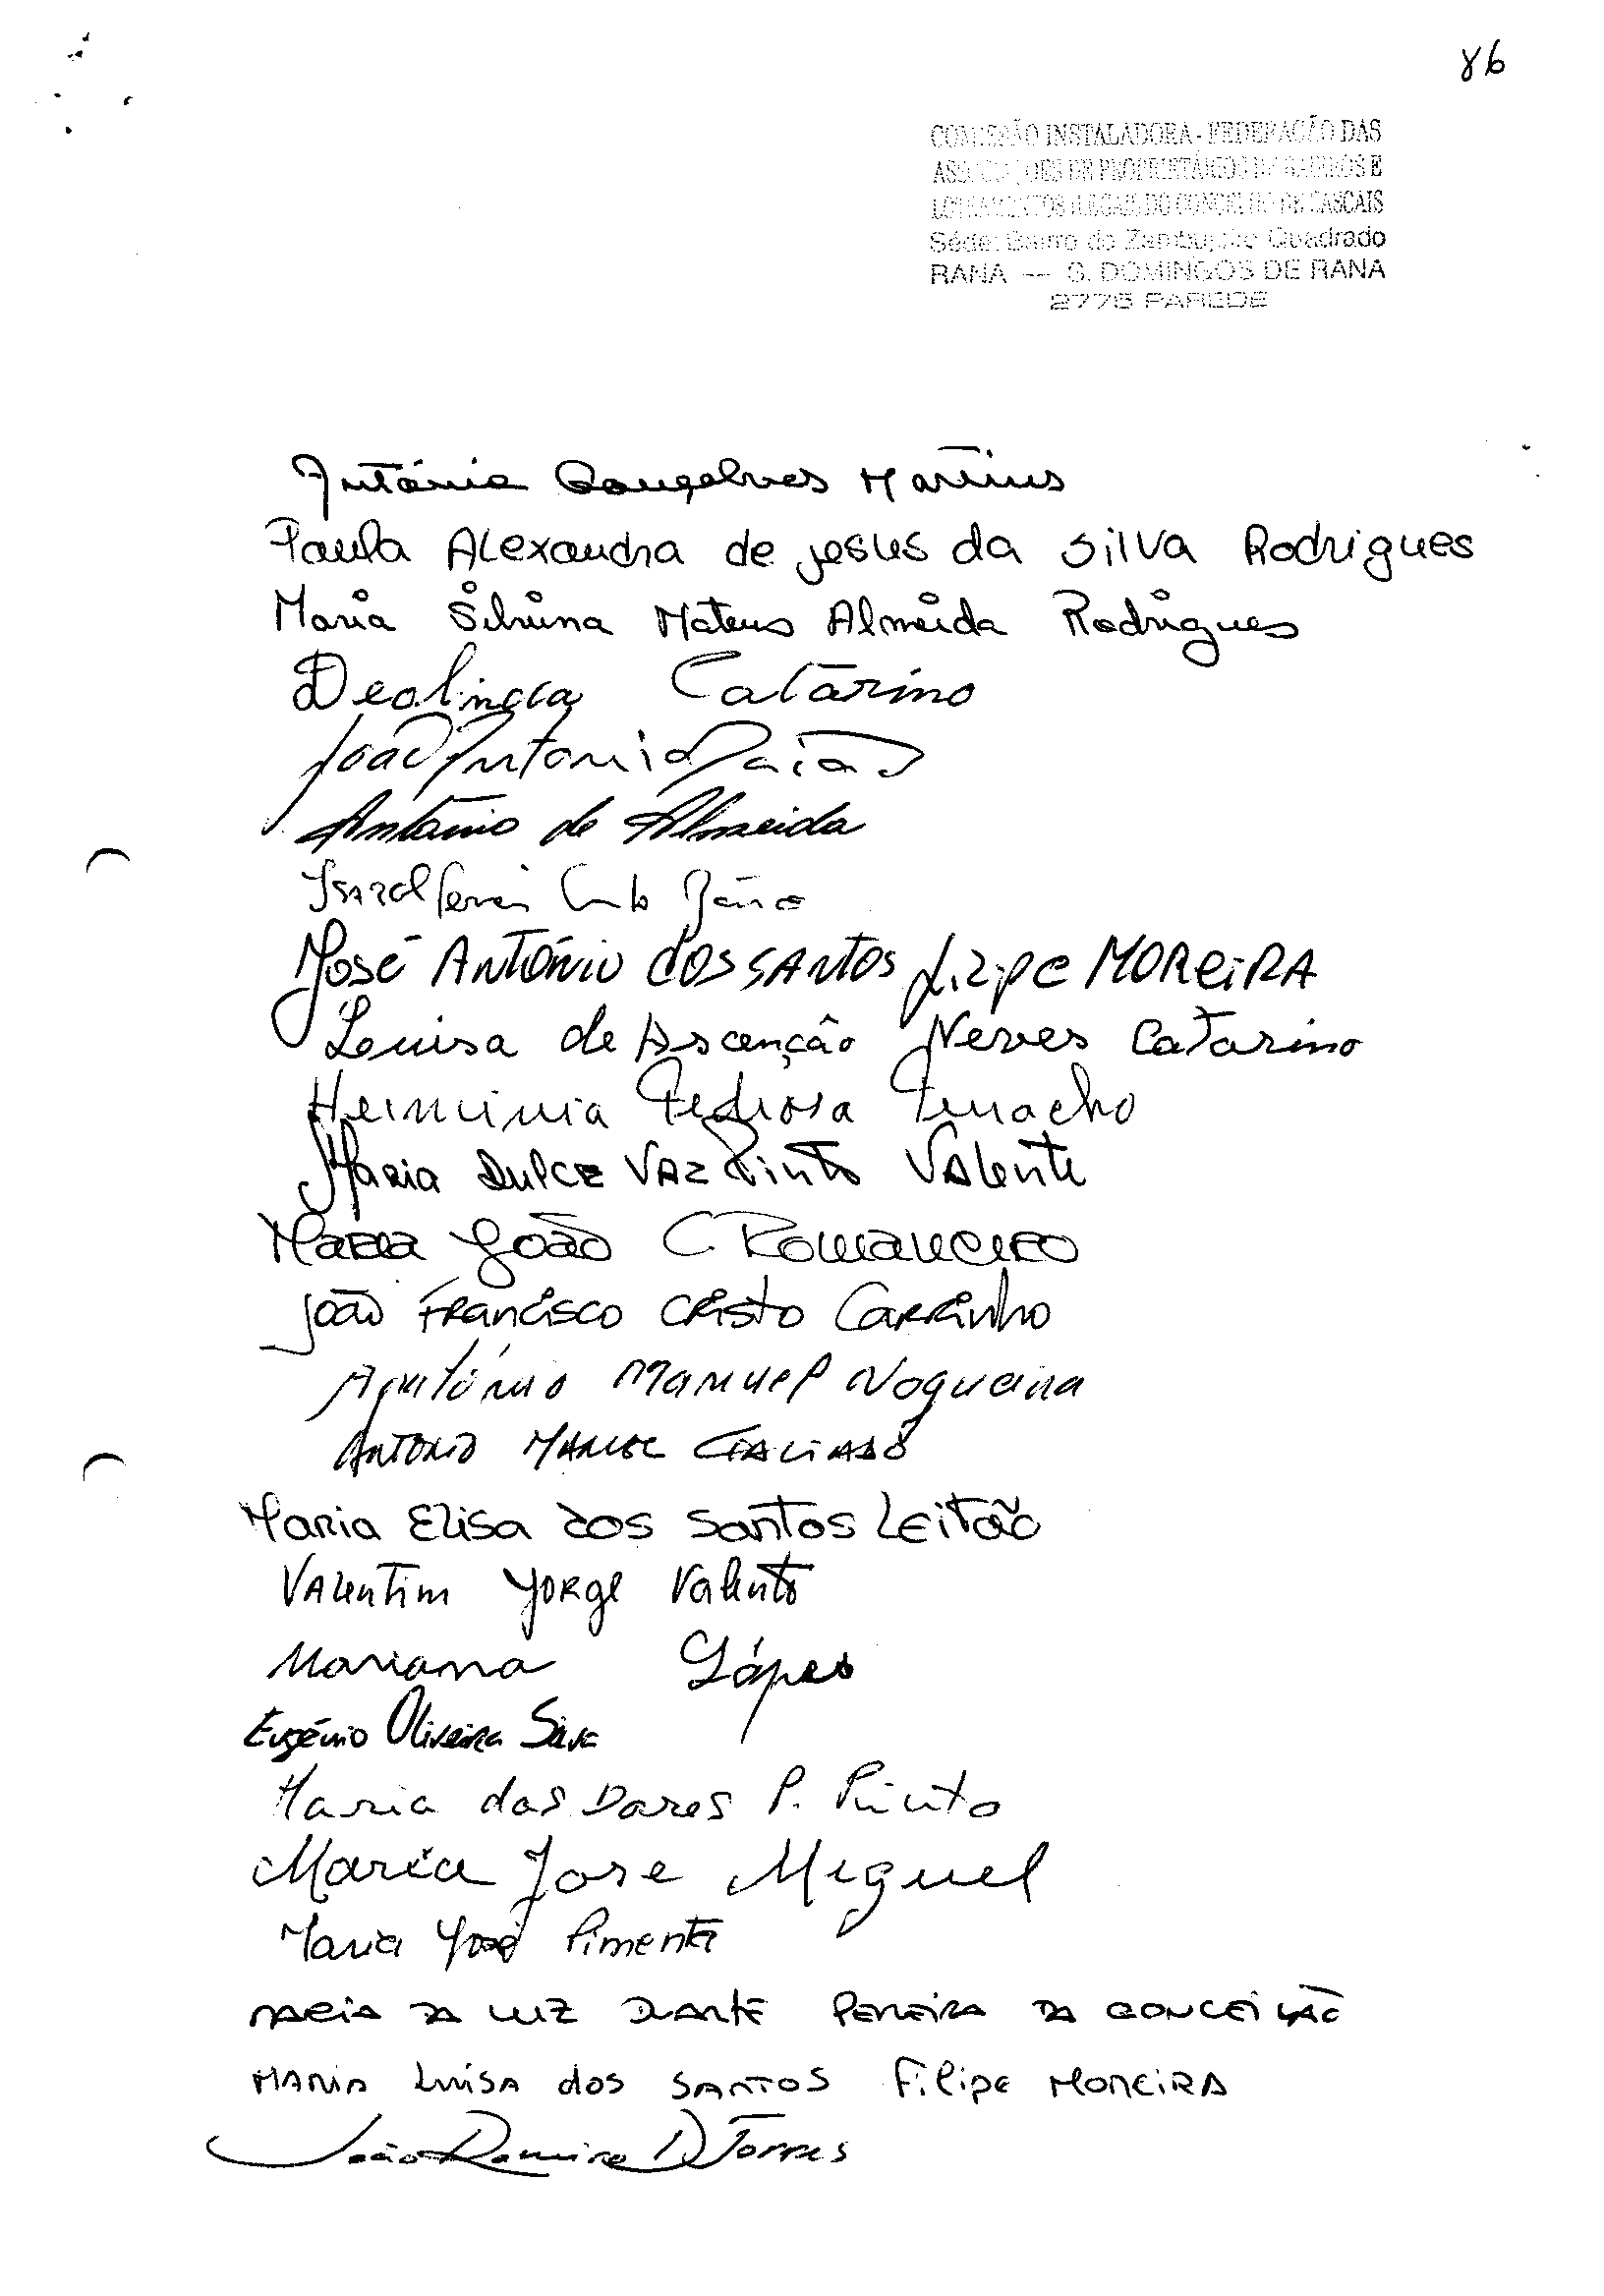 86
COMISSÃO INSTALADORA - FEDERAÇÃO DAS
ASSOCIAÇÕES DE PROPRIETÁRIOS DE BAIRROS E
LOTEAMENTOS ILEGAIS DO CONCELHO DE CASCAIS
Séde: Bairro do Zambujeiro Quadrado
RANA — S. DOMINGOS DE RANA
2775 PAREDE
António Gonçalves Martins
Paula Alexandra de jesus da Silva Rodrigues
Maria Silvina Mateus Almeida Rodrigues
Deolinda Catarino
João António
António de Almeida
José António dos Santos Filipe Moreira
Luisa de Ascenção Neves Catarino
Herminia Pedrosa
Maria Dulce Vaz Pinto Valente
Maria João C Romaneiro
João Francisco Cristo Carrinho
António Manuel Nogueira
António Manuel
Maria Elisa dos Santos Leitão
Valentim Jorge Valente
Mariana Lópes
Eugénio Oliveira Silva
Maria das Dores P. Pinto
Maria Jose Miguel
Maria José Pimenta
Maria da Luz Duarte Pereira da Conceição
Maria Luísa dos Santos Filipe Moreira
João Ramiro D. Torres